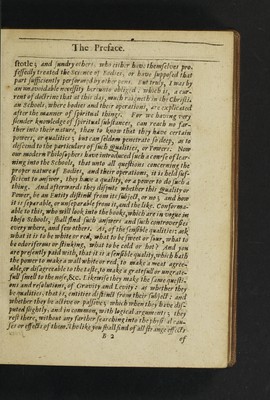 The Preface.
stotle; and sundry others: who either have themselves pro-
fessedly treated the Science of Bodies, or have supposed that
part sufficiently performed by other pens. But truly, I was by
an unavoidable necessity hereunto obliged: which is, a cur-
rent of doctrine that at this day, much raigneth in the Christi-
an Schools, where bodies and their operations, are explicated
after the manner of spiritual things. For we having very
slender knowledge of spiritual substances, can reach no far-
ther into their nature, than to know that they have certain
powers, or qualities; but can seldom penetrate so deep, as to
descend to the particulars of such Qualities, or Powers. Now
our modern Philosophers have introduced such a course of lear-
ning into the Schools, that unto all questions concerning the
proper nature of Bodies, and their operations, it is held suf-
ficient to answer, they have a quality, or a power to do such a
thing. And afterwards they dispute whether this Quality or
Power, be an Entity distinct from its subject, or no; and how
it is separable, or unseparable from it, and the like. Conforma-
ble to this, who will look into the books, which are in vogue in
these Schools, shall find such answers and such controversies
every where, and few others. As, of the sensible qualities: ask
what it is to be white or red, what to be sweet or sour, what to
be odoriferous or stinking, what to be cold or hot? And you
are presently paid with, that it is a sensible quality, which hath
the power to make a wall white or red, to make a meat agree-
able or disagreeable to the taste, to make a grateful or ungrate-
ful smell to the nose, &c. Likewise they make the same questi-
ons and resolutions, of Gravity and Levity: as whether they
be qualities, that is, entities distinct from their subject: and
whether they be active or passive; which when they have dis-
puted slightly, and in common, with logical arguments; they
rest there, without any farther searching into the physical cau-
ses or effects of them. The like you shall find of all strange effects
B 2
of